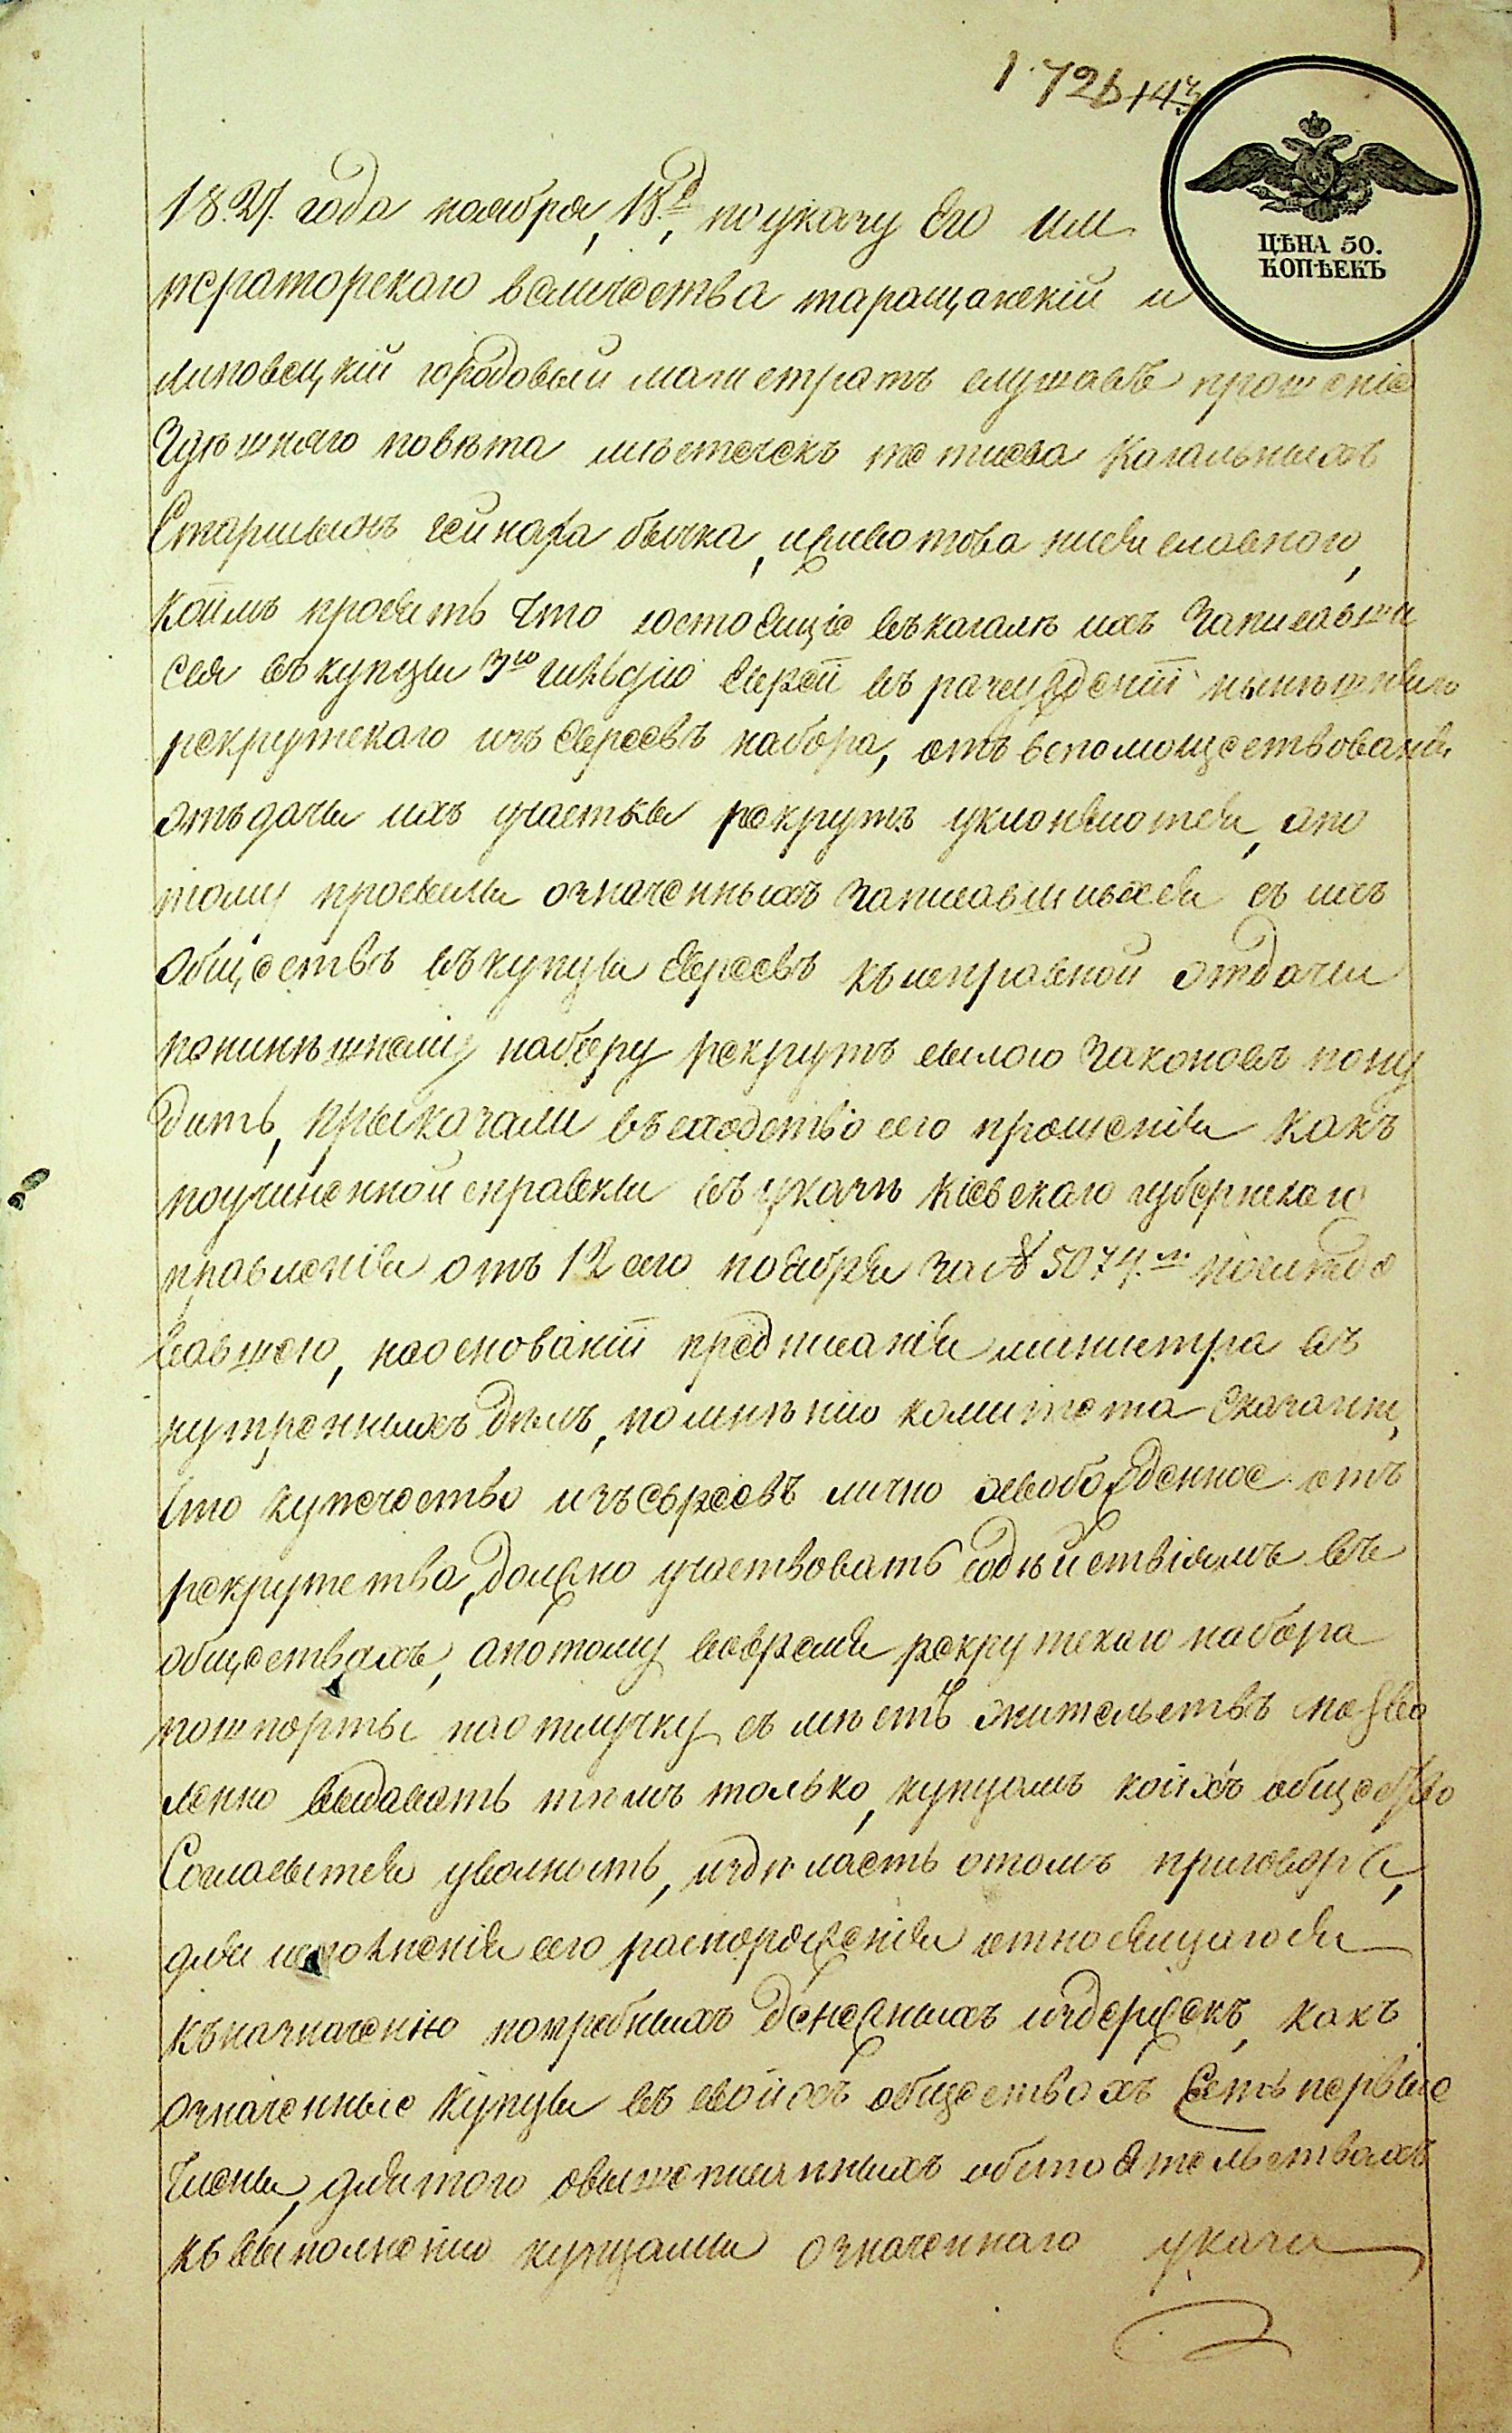 1726 143
ЦѢНА 50.
КОПѢЕКЪ
1827. года ноября, 18.д, по указу Его им
ператорскаго величества таращанскій и
липовецкій городовый магистратъ слушавъ прошеніе
Здѣшняго повѣта мѣстечекъ тетиева кагальныхъ
Старшинъ бычка, и животова
коимъ просятъ что состоящіе въ кагалѣ ихъ записавши
сея въ купцы 3ю гильдію Евреи въ разсужденіи нынѣшняго
рекрутскаго изъ Евреевъ набора, отъ вспомоществованія
отъдачи ихъ участка рекрутъ уклоняются, апо
тому просили означенныхъ записавшихся съ ихъ
обществъ въ купцы Евреевъ къ исправной отдачи
понинѣшнему набору рекрутъ силою законовъ пону
дить, приказали въ сходство сего прошенія какъ
поучиненной справки въ указѣ кіевскаго губернскаго
правленія отъ 12 сего ноября за № 5074.м последо
вавшею, наоснованіи предписанія министра въ
нутренныхъ дѣлъ, помнѣнію комитета сказано,
что купечество изъ евреевъ лично освобожденное отъ
рекрутства, должно участвовать содѣйствіямъ въ
обществахъ, апотому вовремя рекрутскаго набора
пошпорты наотлучку съ мѣстъ жительствъ позво
ленно выдавать тѣмъ только, купцамъ коихъ общество
Согласытся уволность, издѣласть отомъ приговоръ,
для исполненія сего распоряженія относящагося
къназначенію потребныхъ денежныхъ издержекъ, какъ
означенные купцы въ своихъ обществахъ Суть первые
Члены, длятого овышеписанныхъ обстоятельствахъ
къ выполненію купцами означеннаго указа